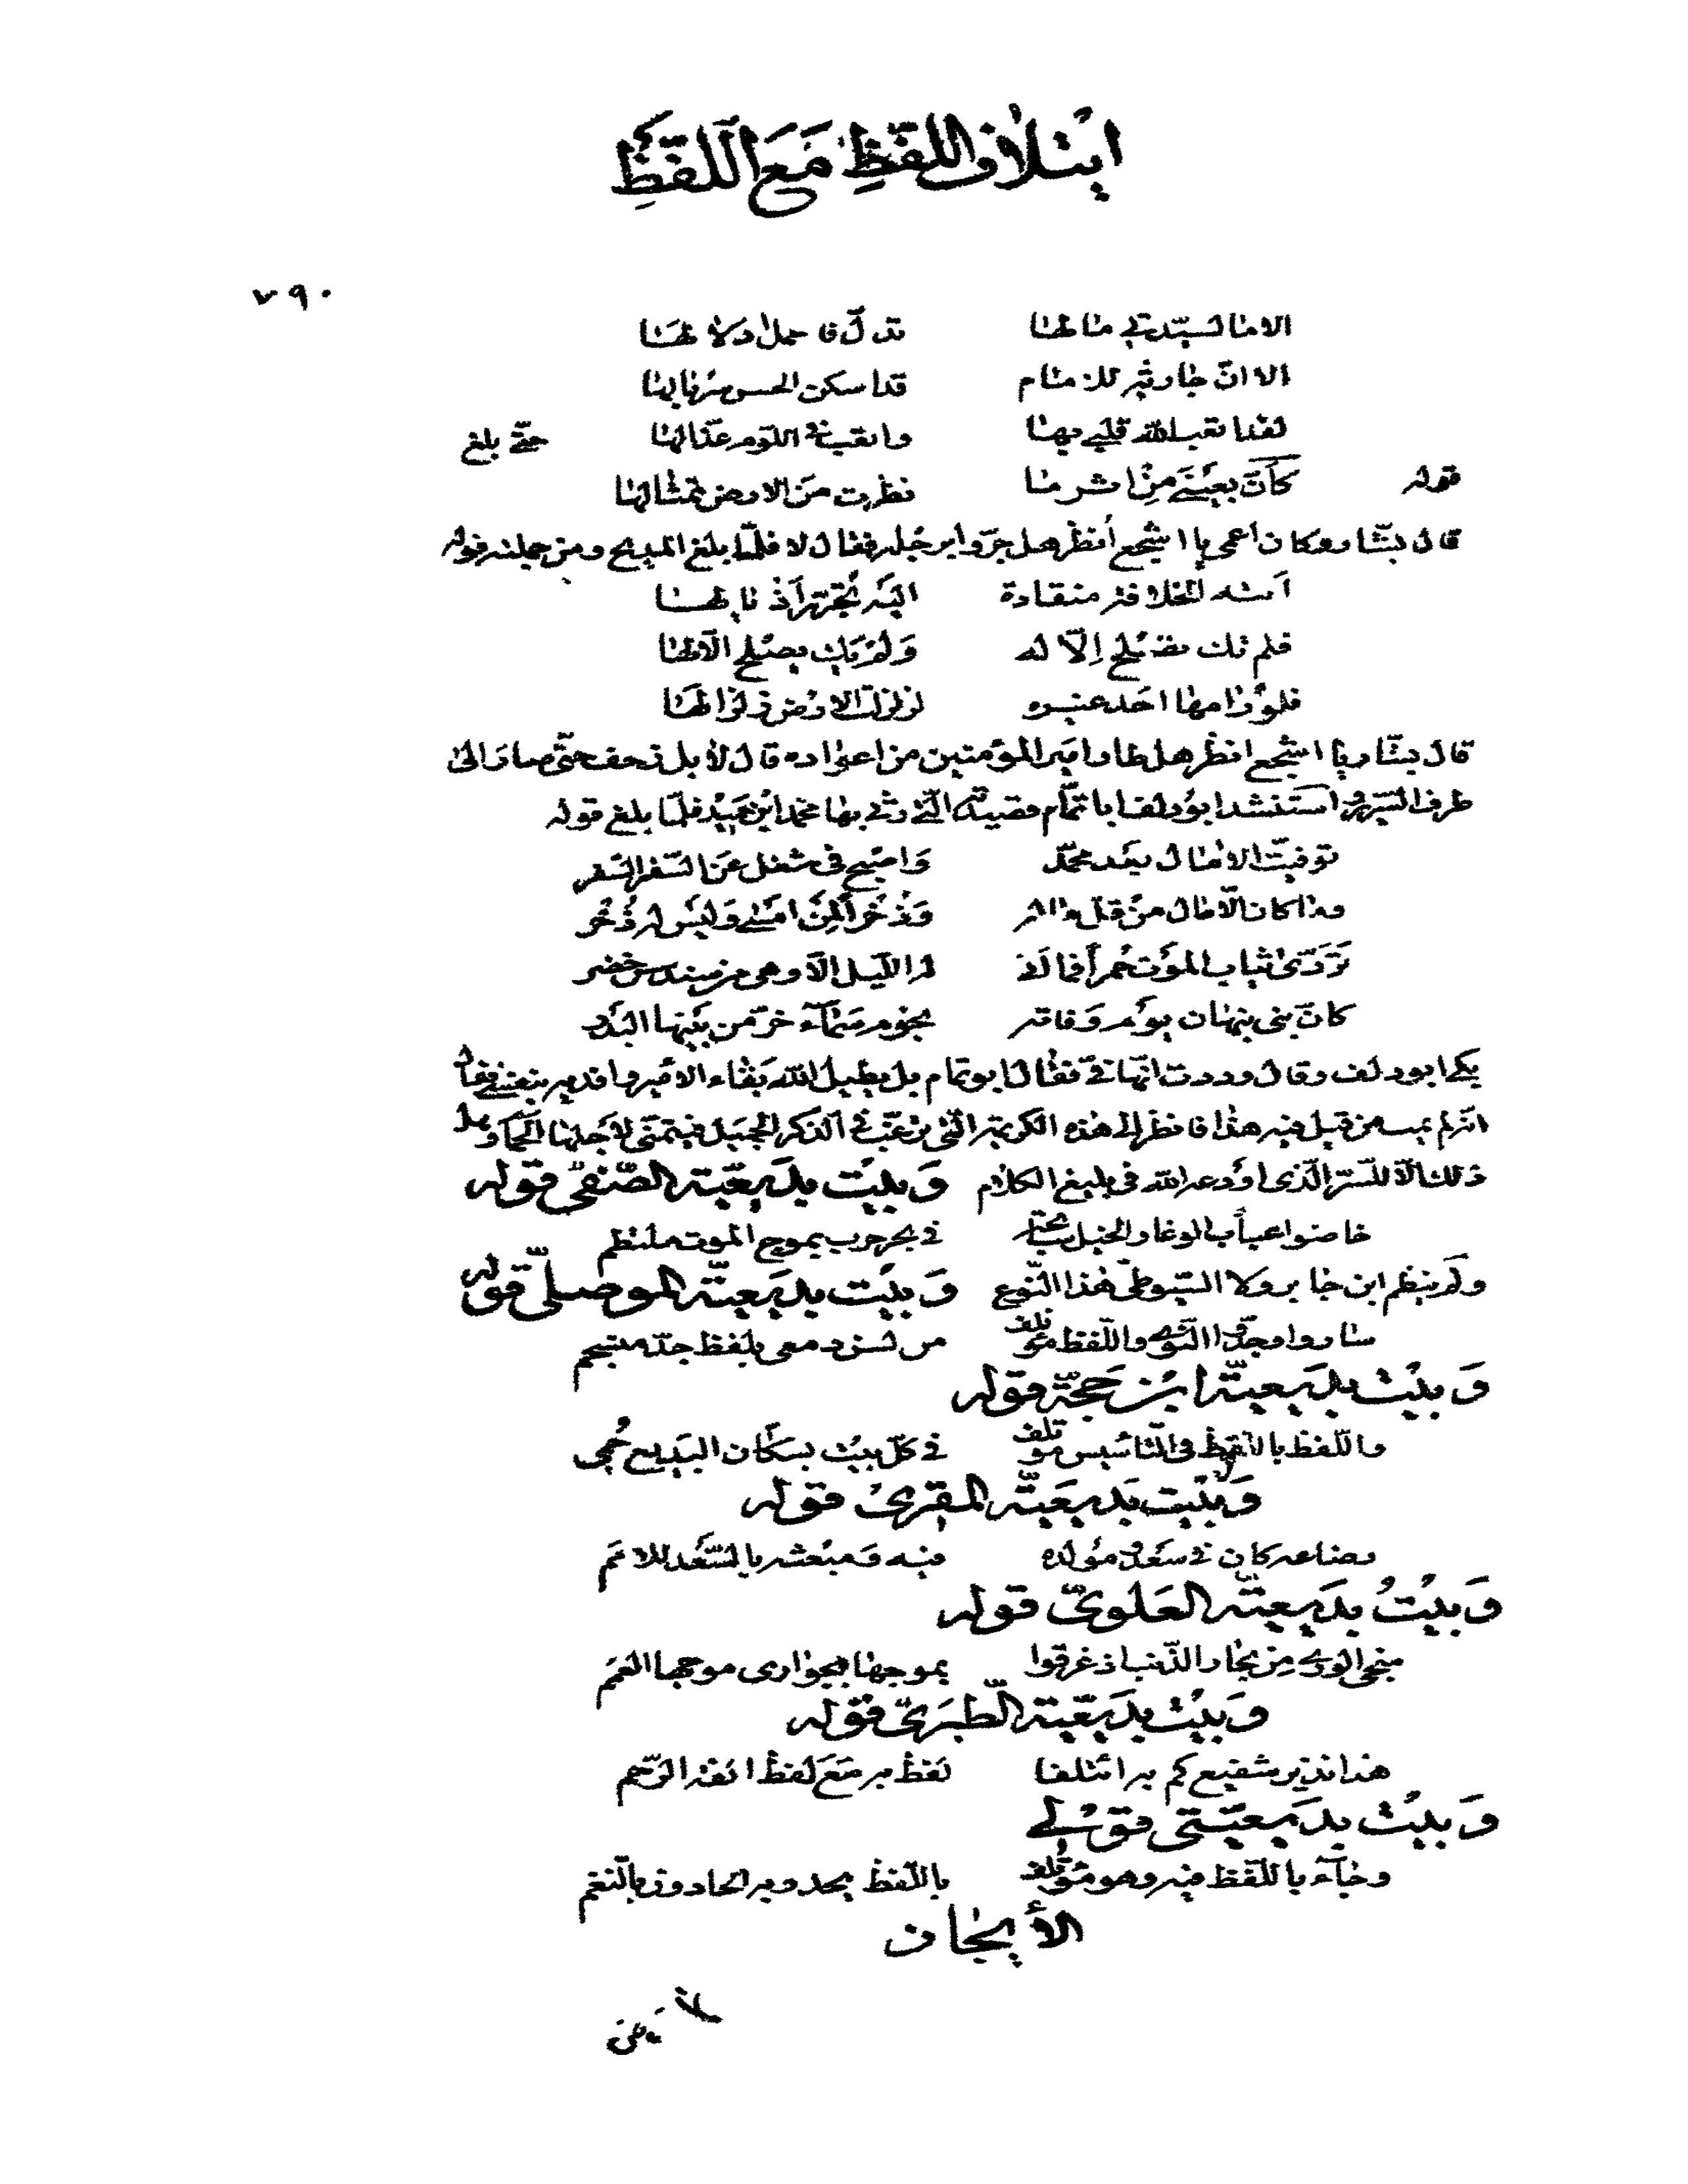 ايتلاف اللفظ مع اللفظ
٧٩٠
الا ما لسيدتي ما لها تدل فاحمل ادلالها
الا ان جارية للامام قد اسكن الحسن سربالها
لقد اتعب الله قلبي بها واتعب في اللوم عذالها حتى بلغ
قوله كأن بعيني من اشرما نظرت من الارض تمثالها
قال بشار وكان أعمى يا اشجع أنظر هل جروا برجله فقال لا فلما بلغ المديح ومن جملته قوله
أتته الخلافة منقادة اليه تجرر أذيالها
فلم تك تصلح إلا له ولم يك يصلح الا لها
فلو رامها احد غيره لزلزلت الارض زلزالها
قال بشار يا اشجع انظر هل طار امير المؤمنين من اعواده قال لا بل زحف حتى صار الى
طرف السرير واستنشد ابو دلف ابا تمام قصيدته التي رثى بها محمد ابن حميد فلما بلغ قوله
توفيت الامال بعد محمد واصبح في شغل عن السفر السفر
وما كان الا مال من قل ماله وذخرا لمن امسى وليس له ذخر
تردى ثياب الموت حمرا فما اتى لها الليل الا وهي من سندس خضر
كان بني نبهان يوم وفاته نجوم سماء خر من بينها البدر
بكى ابو دلف وقال وددت انها في فقال ابو تمام بل يطيل الله بقاء الامير وافديه بنفسي فقال
انه لم يمت من قيل فيه هذا فانظر الى هذه الكريمة التي يرغب في الذكر الجميل فيتمنى لاجلها الحمام وما
ذلك الا للستر الذي اودعه الله في بليغ الكلام وبيت بديعية الصفي قوله
خاضوا عباب الوغا والخيل سابحة في بحر حرب بموج الموت ملتطم
ولم ينظم ابن جابر ولا السيوطي هذا النوع وبيت بديعية الموصلي قوله
ساروا وجدوا النوى واللفظ مؤتلف من لسن دمعي بلفظ جد منسجم
وبيت بديعية ابن حجة قوله
واللفظ باللفظ في التأسيس مؤتلف في كل بيت بسكان البديع حمي
وبيت بديعية المقرئ قوله
رضاعه كان في سعد ومولده فيه ومبعثه بالسعد للامم
وبيت بديعية العلوي قوله
منجي الورى من بحار الذنب اذ غرقوا بموجها بجواري موجها العمم
وبيت بديعية الطبري قوله
هذا نذير شفيع كم به ائتلفا لفظ به مع لفظ
وبيت بديعيتي قولي
وجاء باللفظ فيه وهو مؤتلف باللفظ يحدو به الحادون بالنغم
الأيجاز